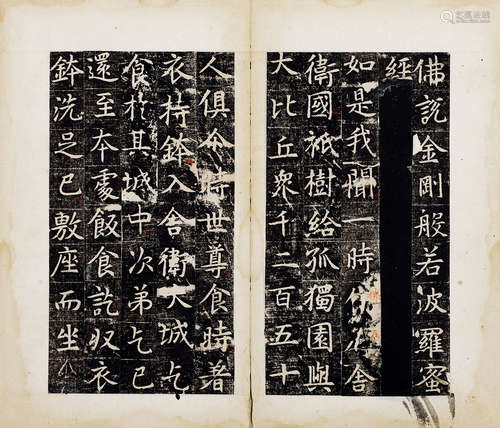 佛說金剛般若波羅蜜
經
如是我聞一時佛在舍
衛國祇樹給孤獨園與
大比丘眾千二百五十
人俱尒時世尊食時著
衣持鉢入舍衛大城乞
食於其城中次弟乞已
還至本處飯食訖収衣
鉢洗足已敷座而坐